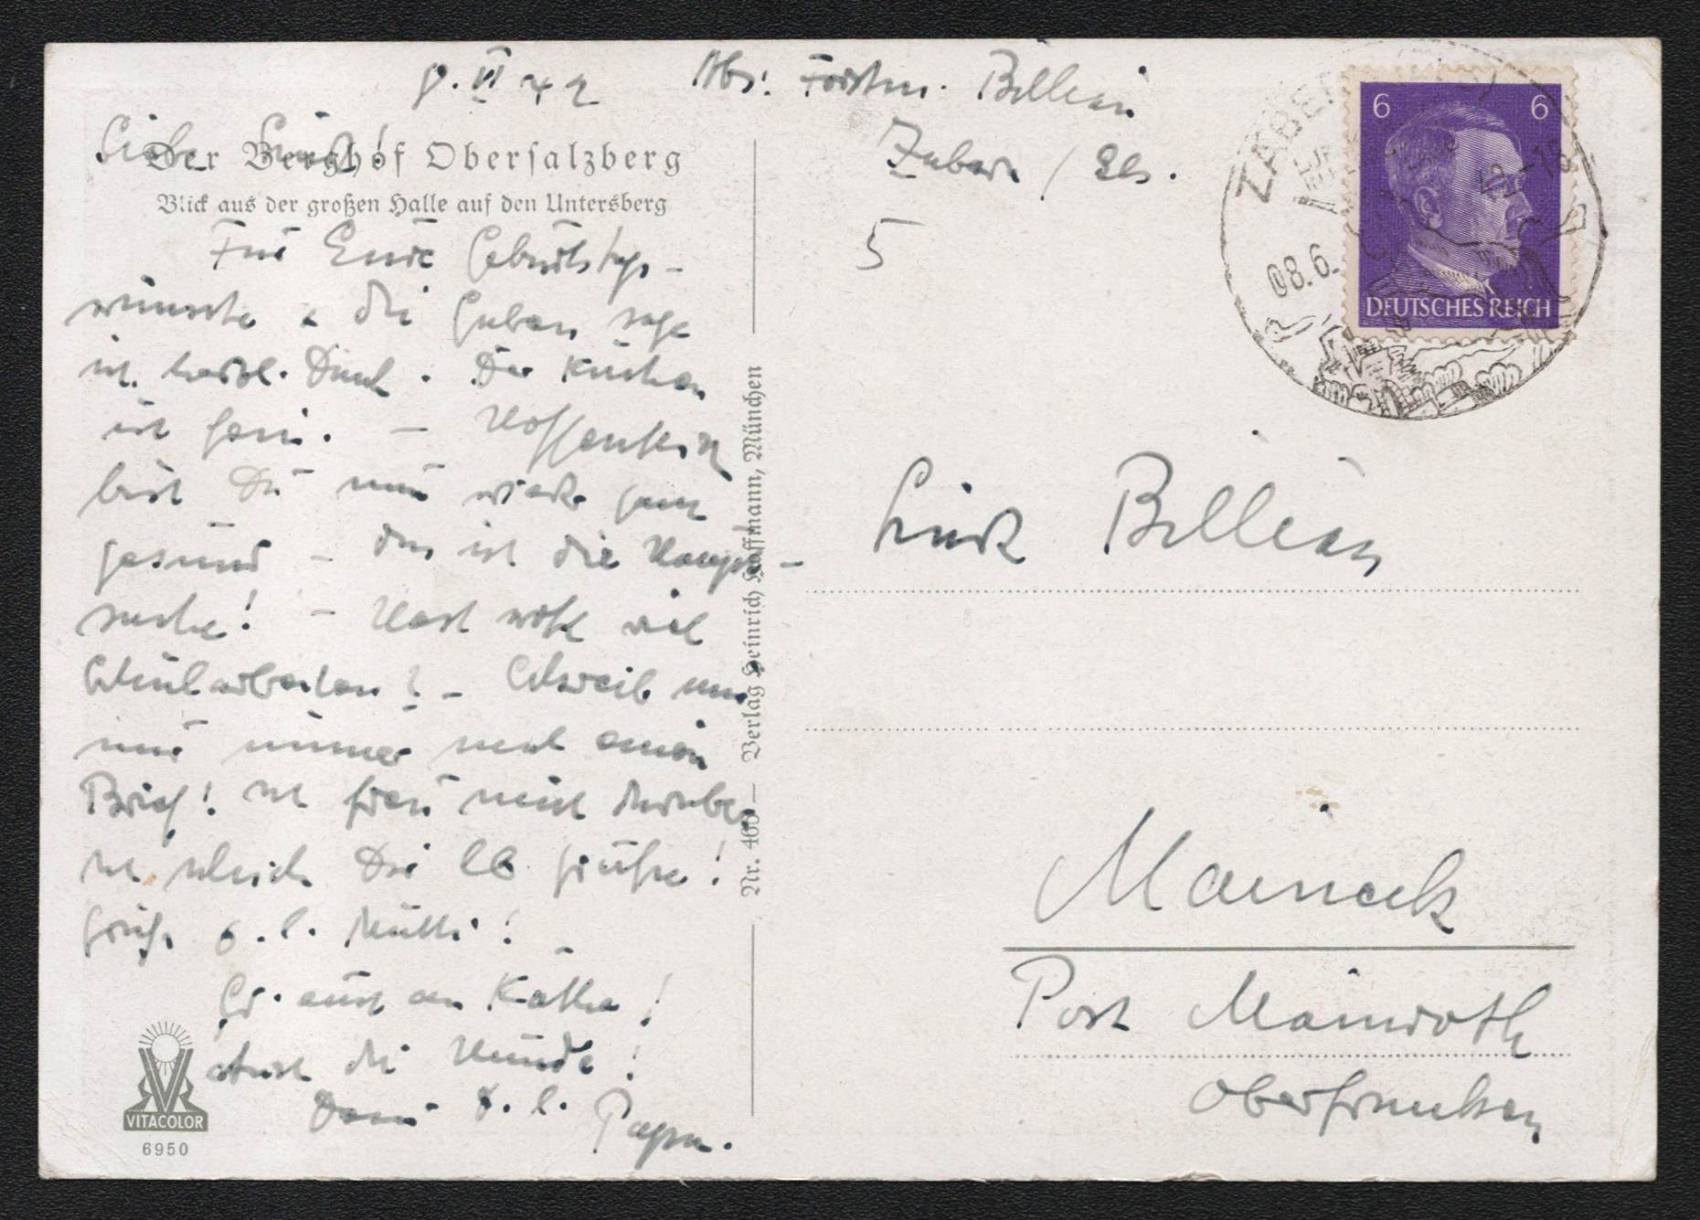 8. VI 42
Abs: Forstm. Billian
Zabern / Els.
5
ZABERN
08.6. 42-18
6 6
DEUTSCHES REICH
Lieber
Der Berghof Obersalzberg
Blick aus der großen Halle auf den Untersberg
Für Eure Geburtstags-
wünsche u die Gaben sage
ich herzl. Dank. Der Kuchen
ist fein. — Hoffentlich
bist Du nun wieder ganz
gesund — das ist die Haupt-
sache! — Hast wohl viel
Schularbeiten! — Schreib mir
nur immer mal einen
Brief! Ich freu mich darüber
Ich schick Dir lb Grüße!
Grüße d. l. Mutti! —
Gr. auch an Käthe!
Auch die Hunde!
Dein d. l. Papa.
Nr. 460 — Verlag Heinrich Hoffmann, München
Billian
Maineck
Post Mainroth
Oberfranken
VITACOLOR
6950